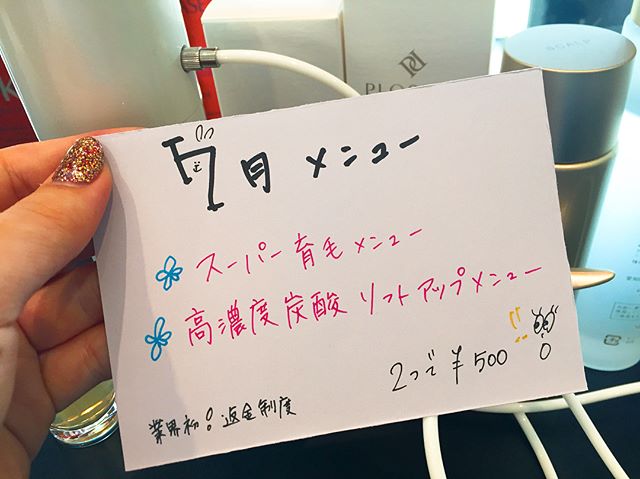 PLOS
SCALP
7月 メニュー
スーパー育毛メニュー
高濃度炭酸 リフトアップメニュー
2つで ¥500 !!
業界初! 返金制度